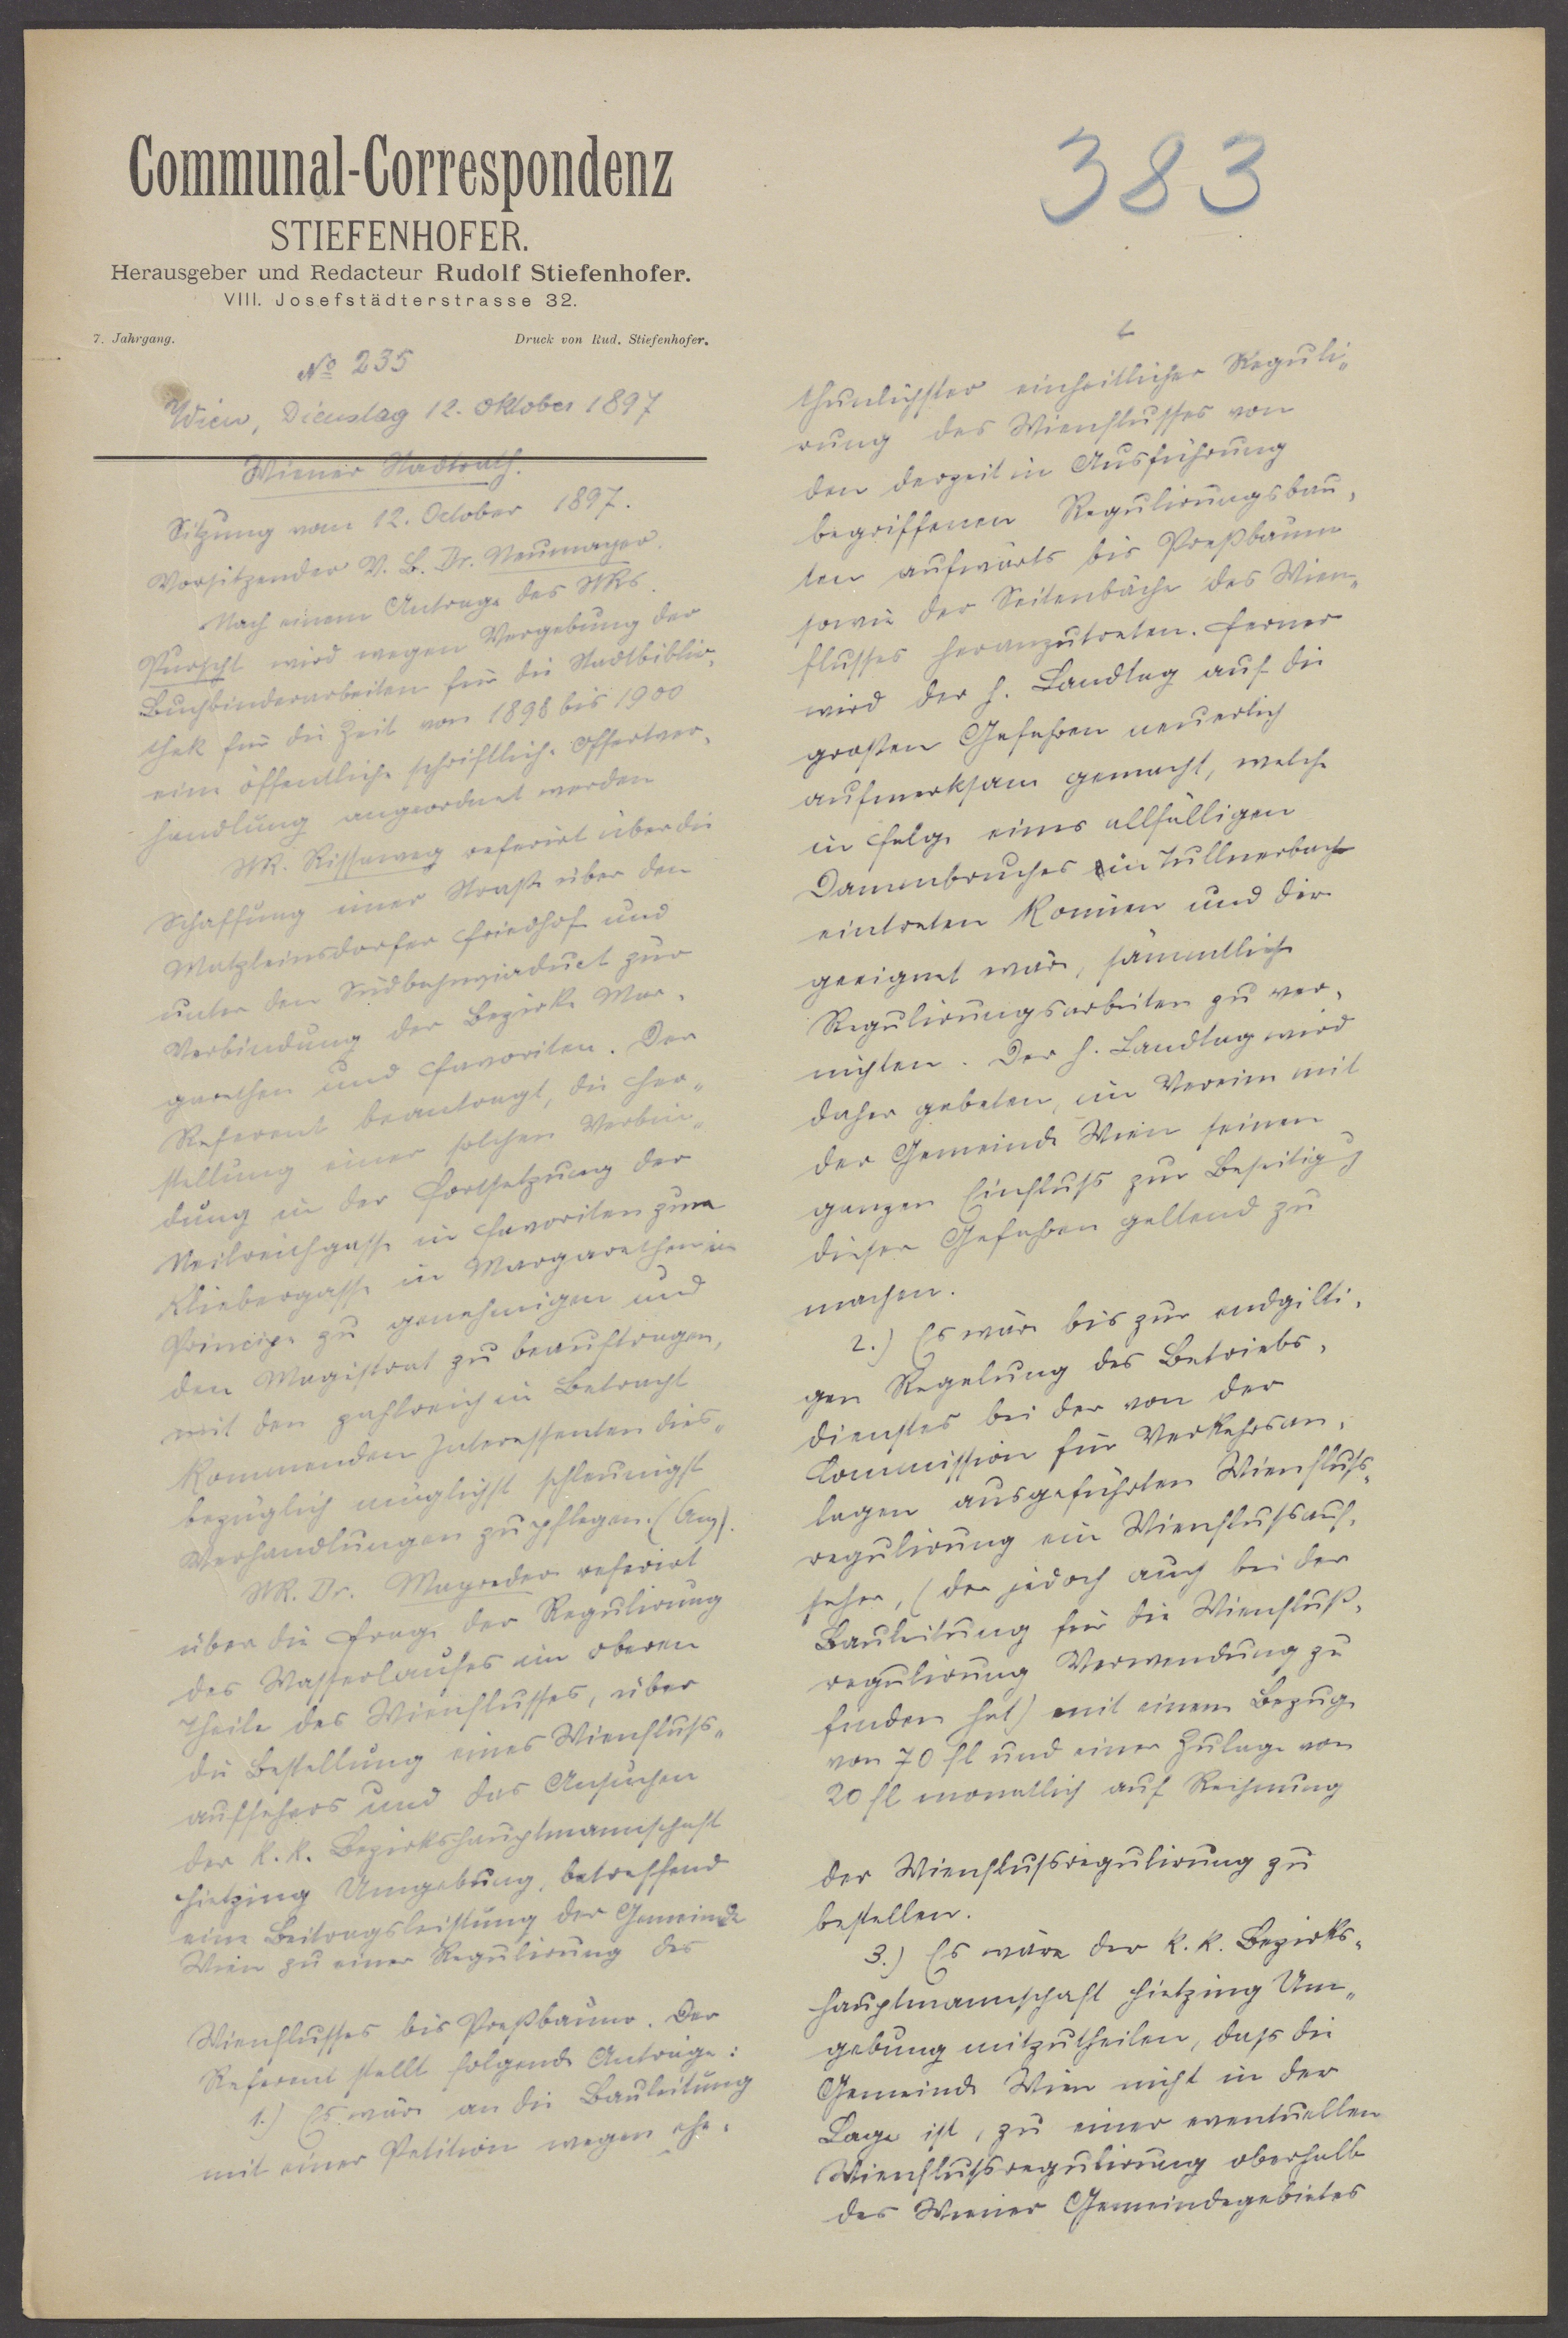 Communal-Correspondenz
STIEFENHOFER.
Herausgeber und Redacteur Rudolf Stiefenhofer.
VIII. Josefstädterstrasse 32.
7. Jahrgang. Druck von Rud. Stiefenhofer.
No 235
Wien, Dienstag 12. Oktober 1897
Wiener Stadtrath.
Sitzung vom 12. October 1897.
Vorsitzender V. B. Dr. Neumayer.
Nach einem Antrage des StRs.
Purscht wird wegen Vergebung der
Buchbinderarbeiten für die Stadtbiblio-
thek für die Zeit von 1898 bis 1900
eine öffentliche schriftliche Offertver-
handlung angeordnet werden
StR. Rissaweg referirt über die
Schaffung einer Straße über den
Matzleinsdorfer Friedhof und
unter dem Südbahnviaduct zur
Verbindung der Bezirke Mar-
garethen und Favoriten. Der
Referent beantragt, die Her-
stellung einer solchen Verbin-
dung in der Fortsetzung der
Neilreichgasse in Favoriten zum
Kliebergasse in Margarethen im
Principe zu genehmigen und
den Magistrat zu beauftragen,
mit den zahlreich in Betracht
kommenden Interessenten dies-
bezüglich möglichst schleunigst
Verhandlungen zu pflegen. (Ang).
StR. Dr. Mayreder referirt
über die Frage der Regulirung
des Wasserlaufes im oberen
Theile des Wienflusses, über
die Bestellung eines Wienfluss-
aufsehers und das Ansuchen
der k. k. Bezirkshauptmannschaft
Hietzing Umgebung, betreffend
eine Beitragsleistung der Gemeinde
Wien zu einer Regulirung des
Wienflusses bis Preßbaum. Der
Referent stellt folgende Anträge:
1.) Es wäre an die Bauleitung
mit einer Petition wegen ehe-
383
thunlichster einheitlicher Reguli-
rung des Wienflusses von
den derzeit in Ausführung
begriffenen Regulirungsbau-
ten aufwärts bis Preßbaum
sowie der Seitenbäche des Wien-
flusses heranzutreten. Ferner
wird der h. Landtag auf die
großen Gefahren neuerlich
aufmerksam gemacht, welche
in Folge eines allfälligen
Dammbruches in Tullnerbach
eintreten können und die
geeignet wäre, sämmtliche
Regulirungsarbeiten zu ver-
nichten. Der h. Landtag wird
daher gebeten, im Verein mit
der Gemeinde Wien seinen
ganzen Einfluss zur Beseitigg
dieser Gefahren geltend zu
machen.
2.) Es wäre bis zur endgilti-
gen Regelung des Betriebs-
dienstes bei der von der
Commission für Verkehrsan-
lagen ausgeführten Wienfluss-
regulirung ein Wienflussauf-
seher, (der jedoch auch bei der
Bauleitung für die Wienfluß-
regulirung Verwendung zu
finden hat) mit einem Bezuge
von 70 fl und einer Zulage von
20 fl monatlich auf Rechnung
der Wienflussregulirung zu
bestellen.
3.) Es wäre der k. k. Bezirks-
hauptmannschaft Hietzing Um-
gebung mitzutheilen, dass die
Gemeinde Wien nicht in der
Lage ist, zu einer eventuellen
Wienflussregulirung oberhalb
des Wiener Gemeindegebietes